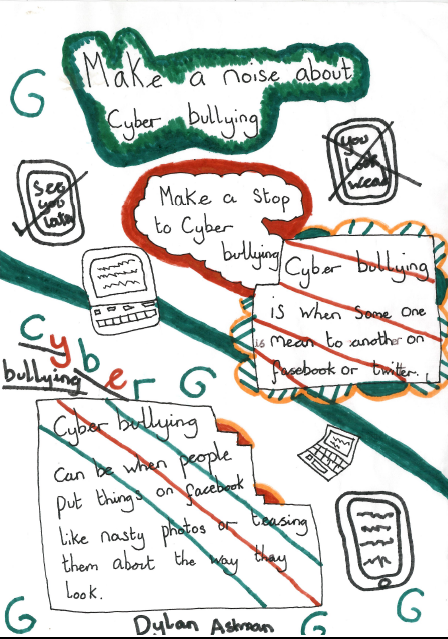 Make a noise about
Cyber bullying
G
you
look
weak
See
you
later
Make a stop
to Cyber
bullying
Cyber bullying
is when some one
is mean to another on
facebook or twitter.
Cyber
bullying
G
Cyber bullying
Can be when people
put things on facebook
like nasty photos or teasing
them about the way thay
look.
G
G
G
Dylan Ashman